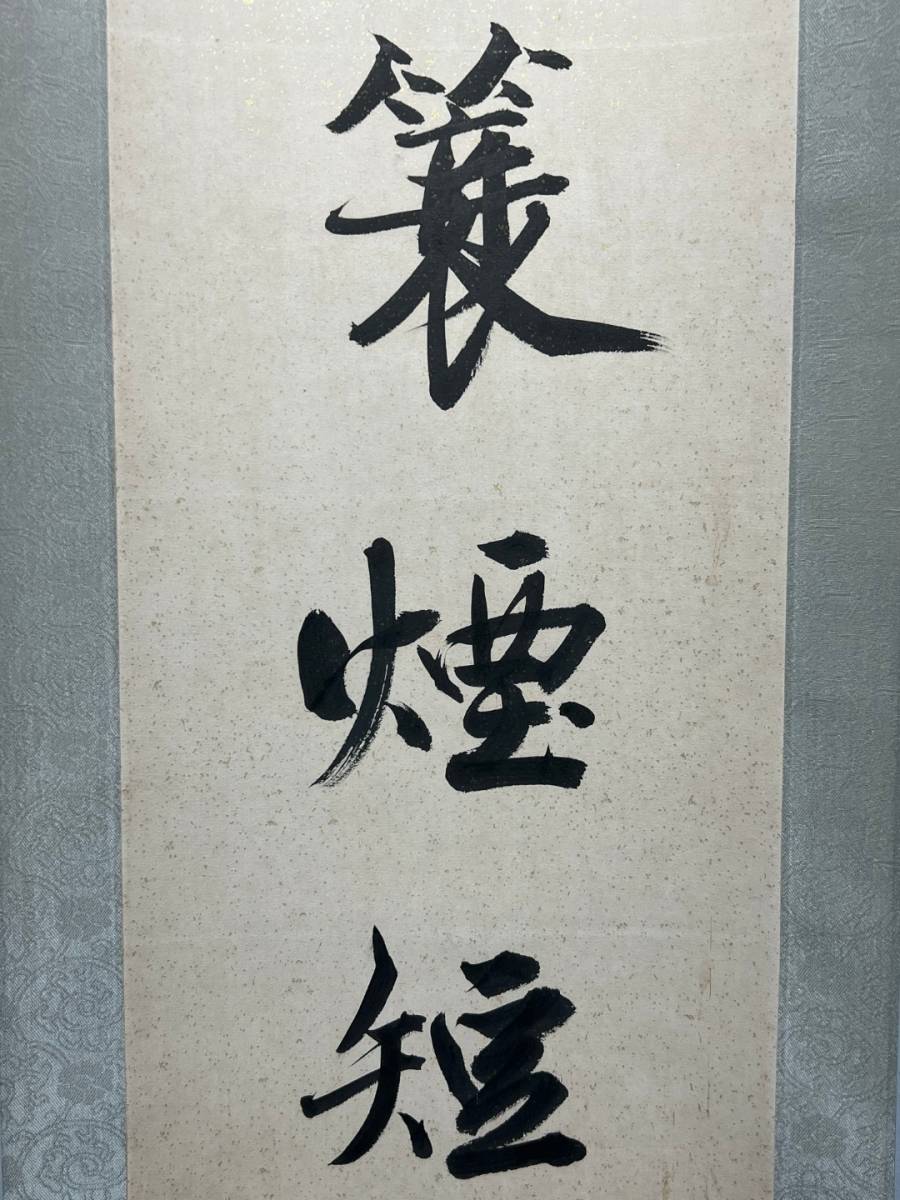 簑煙短